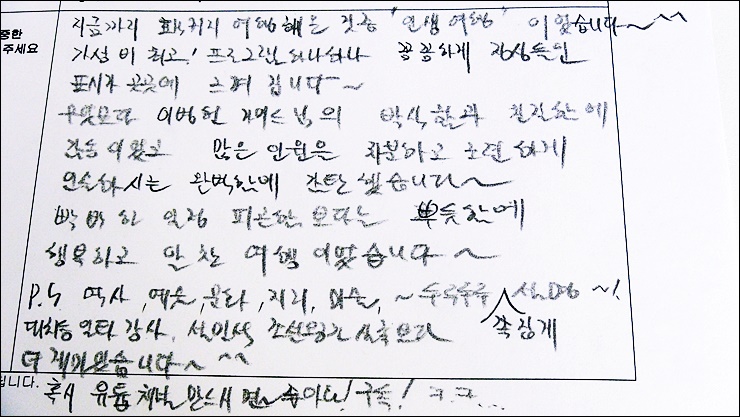 중한
주세요
지금까지 패키지 여행해온 것중 "인생여행" 이었습니다~^^
가성비 최고! 프로그램 하나하나 꼼꼼하게 정성들인
표시가 곳곳에 느껴집니다~
무엇보다 이병헌 가이드님의 박식함과 친절함에
감동이었고 많은 인원을 차분하고 노련하게
인솔하시는 완벽함에 감탄했습니다~
빡빡한 일정 피곤함 보다는 뿌듯함에
행복하고 알찬 여행이었습니다~
P.S 역사, 예술, 문화, 지리, 미술, ~ 수루루루 쪽집게 설명~!
대치동 일타 강사, 설민석 조선왕조 실록보다
더 재미있습니다~^^
됩니다.
혹시 유튭채널 만드시면~ 좋아요! 구독! ㅋㅋ...